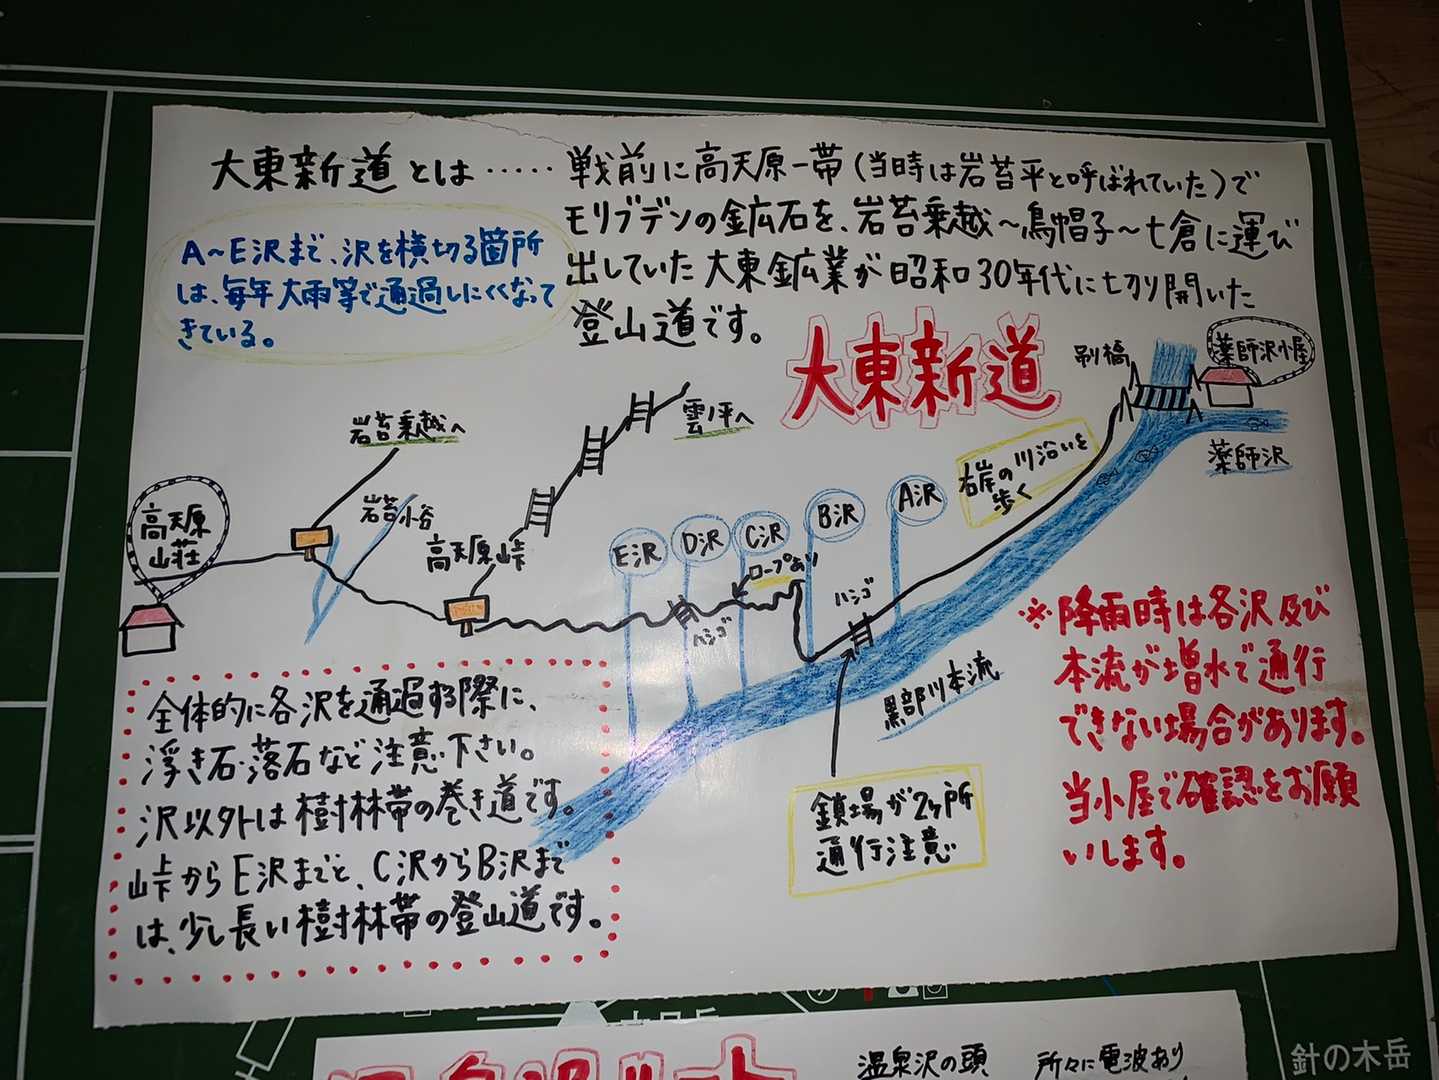 大東新道とは・・・・・戦前に高天原一帯(当時は岩苔平と呼ばれていた)で
モリブデンの鉱石を、岩苔乗越～烏帽子～七倉に運び
出していた大東鉱業が昭和30年代に切り開いた
登山道です。
A～E沢まで、沢を横切る箇所
は、毎年大雨等で通過しにくくなって
きている。
大東新道
吊橋
薬師沢小屋
薬師沢
岩苔乗越へ
雲ノ平へ
右岸の川沿いを
歩く
高天原
山荘
岩苔小谷
高天原峠
E沢
D沢
C沢
B沢
A沢
ロープあり
ハシゴ
ハシゴ
黒部川本流
※降雨時は各沢及び
本流が増水で通行
できない場合があります。
当小屋で確認をお願
いします。
全体的に各沢を通過する際に、
浮き石・落石など注意下さい。
沢以外は樹林帯の巻き道です。
峠からE沢までと、C沢からB沢まで
は、少し長い樹林帯の登山道です。
鎖場が2ヶ所
通行注意
温泉沢の頭
所々に電波あり
針の木岳